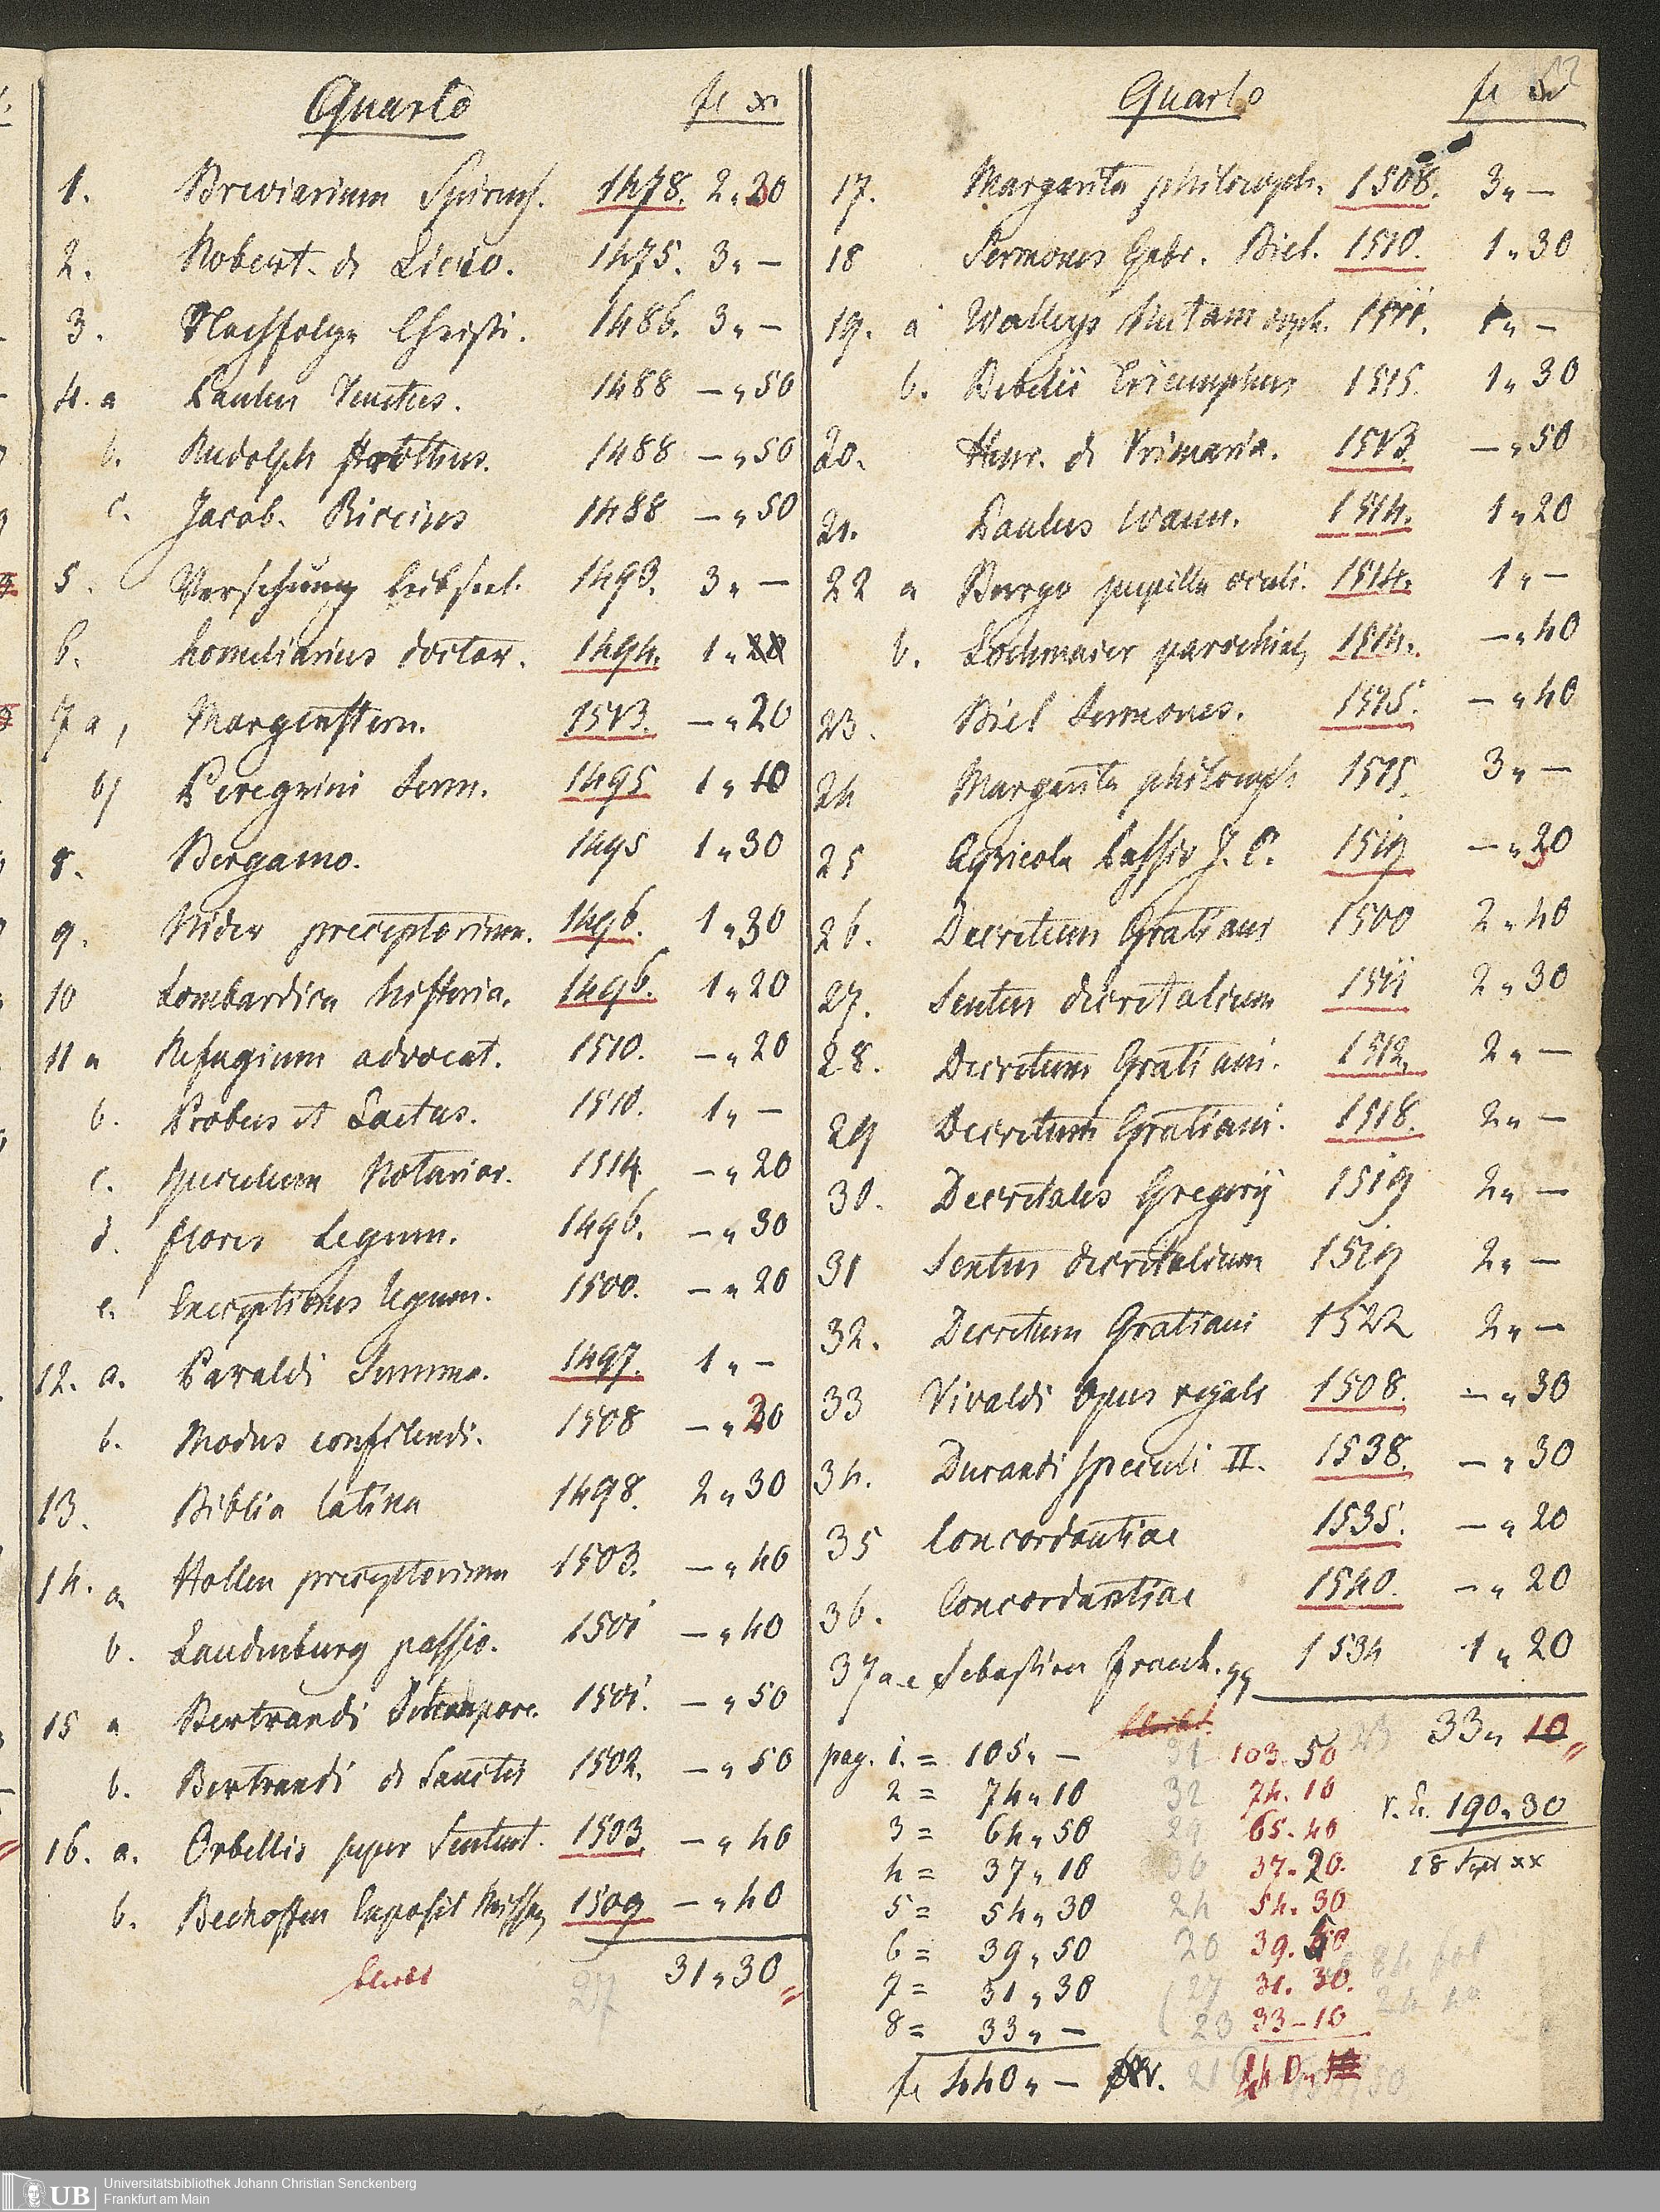 Quarto fl xr
1. Breviarium Spirens. 1478. 2 " 20
2. Robert. de Licio. 1475. 3 " —
3. Nachfolge Christi. 1486. 3 " —
4. a Paulus Venetus. 1488 — " 50
b. Rudolph Strothus. 1488 — " 50
c. Jacob. Riccius 1488 — " 50
5. Versehung leib seel. 1493. 3 " —
6. homeliarius doctor. 1494. 1 " 20
7 a, Margenstern. 1513. — " 20
b) Peregrini Serm. 1495 1 " 10
8. Bergamo. 1495 1 " 30
9. Nider preceptorium. 1496. 1 " 30
10 Lombardica historia. 1496. 1 " 20
11 a Refugium advocat. 1510. — " 20
b. Probus et Laetus. 1510. 1 " —
c. Speculum Notarior. 1514. — " 20
d. flores Legum. 1496. — " 30
e. Exceptiones legum. 1500. — " 20
12. a. Paraldi Summa. 1497. 1 " —
b. Modus confitendi. 1508 — " 30
13. Biblia latina 1498. 2 " 30
14. a Hollen preceptorium 1503. — " 40
b. Landenburg passio. 1501 — " 40
15 a Bertrandi de tempore. 1501. — " 50
b. Bertrandi de Sanctis 1502. — " 50
16. a. Orbellis super Sentent. 1503. — " 40
b. Bechoffen Exposit Missae 1509 — " 40
27 31 " 30
Quarto fl xr
17. Margarita philosoph. 1508. 3 " —
18 Sermones Gabr. Biel. 1510. 1 " 30
19. a Walleys Metamorph. 1511. 1 " —
b. Bebelii Triumphus 1515. 1 " 30
20. Henr. de Vrimaria. 1513. — " 50
21. Paulus Wann. 1514. 1 " 20
22 a Borgo pupilla oculi. 1514. 1 " —
b. Lochmaier parochial, 1514. — " 40
23. Biel Sermones. 1515. — " 40
24 Margarita philosoph. 1515. 3 " —
25 Agricola Passio J. C. 1519 — " 30
26. Decretum Gratiani 1500 2 " 40
27. Sextus decretalium 1511 2 " 30
28. Decretum Gratiani. 1512. 2 " —
29 Decretum Gratiani. 1518. 2 " —
30. Decretales Gregorij 1519 2 " —
31 Sextus decretalium 1519 2 " —
32. Decretum Gratiani 1522 2 " —
33 Vivaldi Opus regale 1508. — " 30
34. Durandi Speculi II. 1538. — " 30
35 Concordantiae 1535. — " 20
36. Concordantiae 1540. — " 20
37 a-e Sebastian Franck. 1534 1 " 20
23 33 " 10
pag. 1. = 105 " — 31 103. 50
2 = 74 " 10 32 74. 10
3 = 64 " 50 29 65. 40
4 = 37 " 10 30 37. 20.
5 = 54 " 30 24 54. 30
6 = 39 " 50 20 39. 50
7 = 31 " 30 27 31. 30.
8 = 33 " — 23 33 — 10
fl 440 " —
190 " 30
Universitätsbibliothek Johann Christian Senckenberg
UB Frankfurt am Main